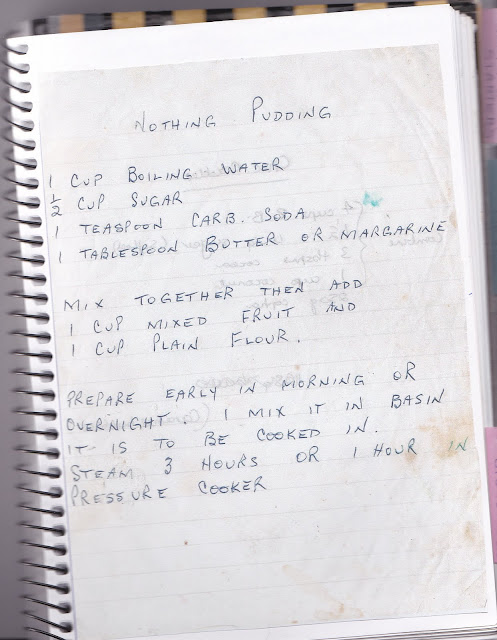 NOTHING PUDDING
1 CUP BOILING WATER
1/2 CUP SUGAR
1 TEASPOON CARB. SODA
1 TABLESPOON BUTTER OR MARGARINE
MIX TOGETHER THEN ADD
1 CUP MIXED FRUIT AND
1 CUP PLAIN FLOUR.
PREPARE EARLY IN MORNING OR
OVERNIGHT. I MIX IT IN BASIN
IT IS TO BE COOKED IN.
STEAM 3 HOURS OR 1 HOUR IN
PRESSURE COOKER